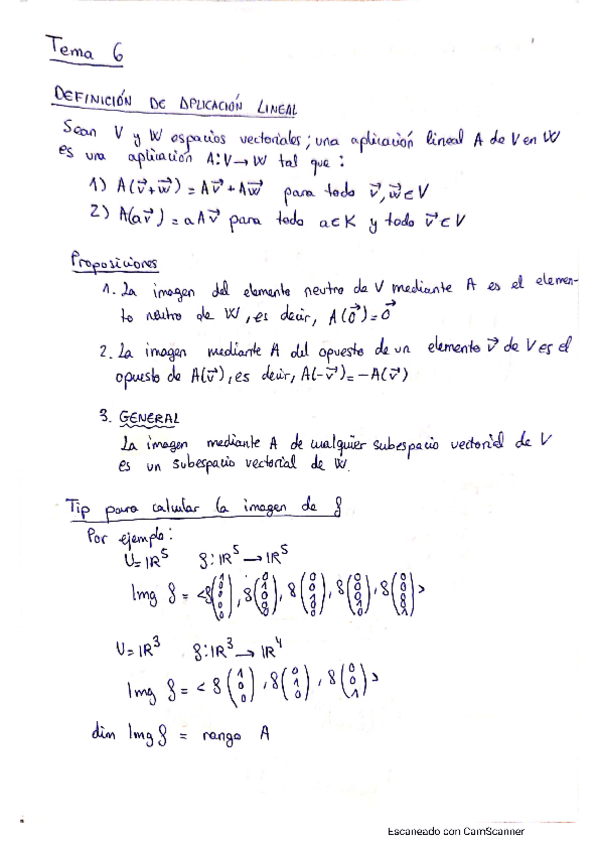 Tema 6
DEFINICIÓN DE APLICACIÓN LINEAL
Sean V y W espacios vectoriales; una aplicación lineal A de V en W
es una aplicación A: V → W tal que:
1) A(v⃗+w⃗) = Av⃗ + Aw⃗ para todo v⃗, w⃗ ∈ V
2) A(av⃗) = a Av⃗ para todo a ∈ K y todo v⃗ ∈ V
Proposiciones
1. La imagen del elemento neutro de V mediante A es el elemen-
to neutro de W, es decir, A(0⃗) = 0⃗
2. La imagen mediante A del opuesto de un elemento v⃗ de V es el
opuesto de A(v⃗), es decir, A(-v⃗) = -A(v⃗)
3. GENERAL
La imagen mediante A de cualquier subespacio vectorial de V
es un subespacio vectorial de W.
Tip para calcular la imagen de f
Por ejemplo:
U = IR⁵ f: IR⁵ → IR⁵
Img f = <f(1 0 0 0 0), f(0 1 0 0 0), f(0 0 1 0 0), f(0 0 0 1 0), f(0 0 0 0 1)>
U = IR³ f: IR³ → IR⁴
Img f = < f(1 0 0), f(0 1 0), f(0 0 1)>
dim Img f = rango A
Escaneado con CamScanner